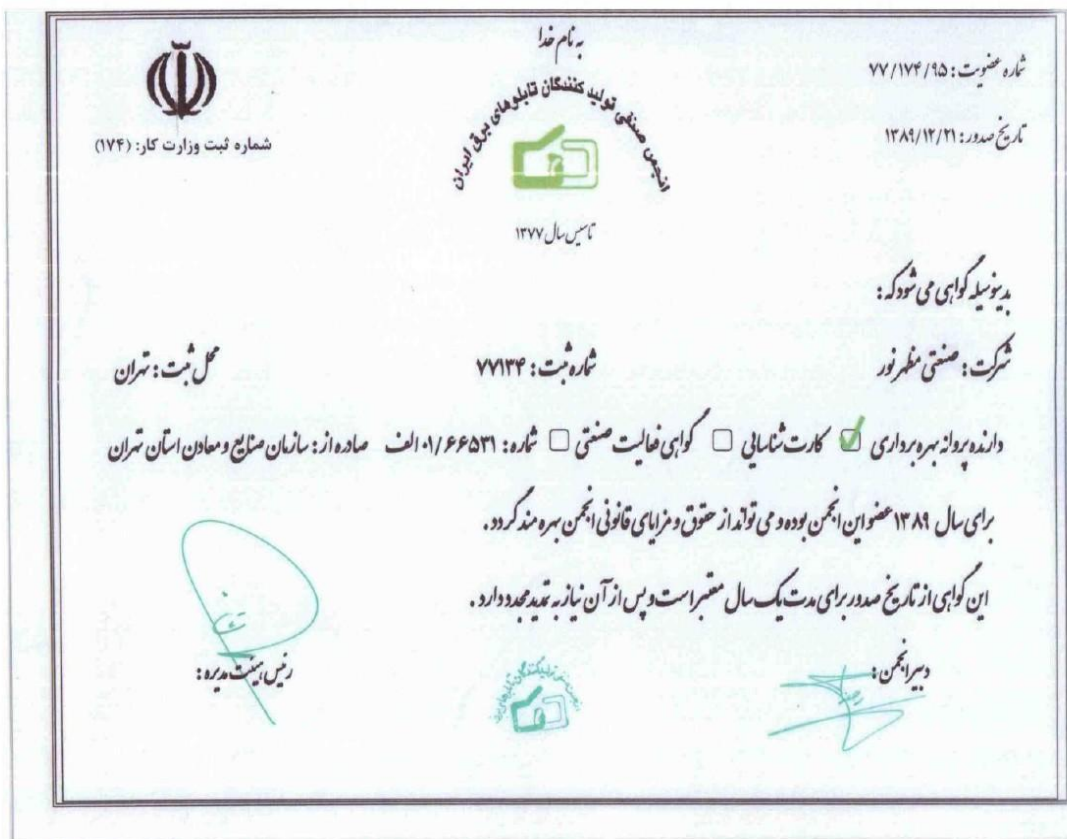 به نام خدا
شماره عضویت: ۷۷/۱۷۴/۹۵
تاریخ صدور: ۱۳۸۹/۱۲/۲۱
انجمن صنفی تولید کنندگان تابلوهای برق ایران
تاسیس سال ۱۳۷۷
شماره ثبت وزارت کار: (۱۷۴)
بدینوسیله گواهی می شود که:
شرکت: صنعتی مظهر نور شماره ثبت: ۷۷۱۳۴ محل ثبت: تهران
دارنده پروانه بهره برداری ☑ کارت شناسایی ☐ گواهی فعالیت صنعتی ☐ شماره: ۰۱/۶۶۵۳۱ الف صادره از: سازمان صنایع و معادن استان تهران
برای سال ۱۳۸۹ عضو این انجمن بوده و می تواند از حقوق و مزایای قانونی انجمن بهره مند گردد.
این گواهی از تاریخ صدور برای مدت یک سال معتبر است و پس از آن نیاز به تمدید مجدد دارد.
دبیر انجمن:
رئیس هیئت مدیره: